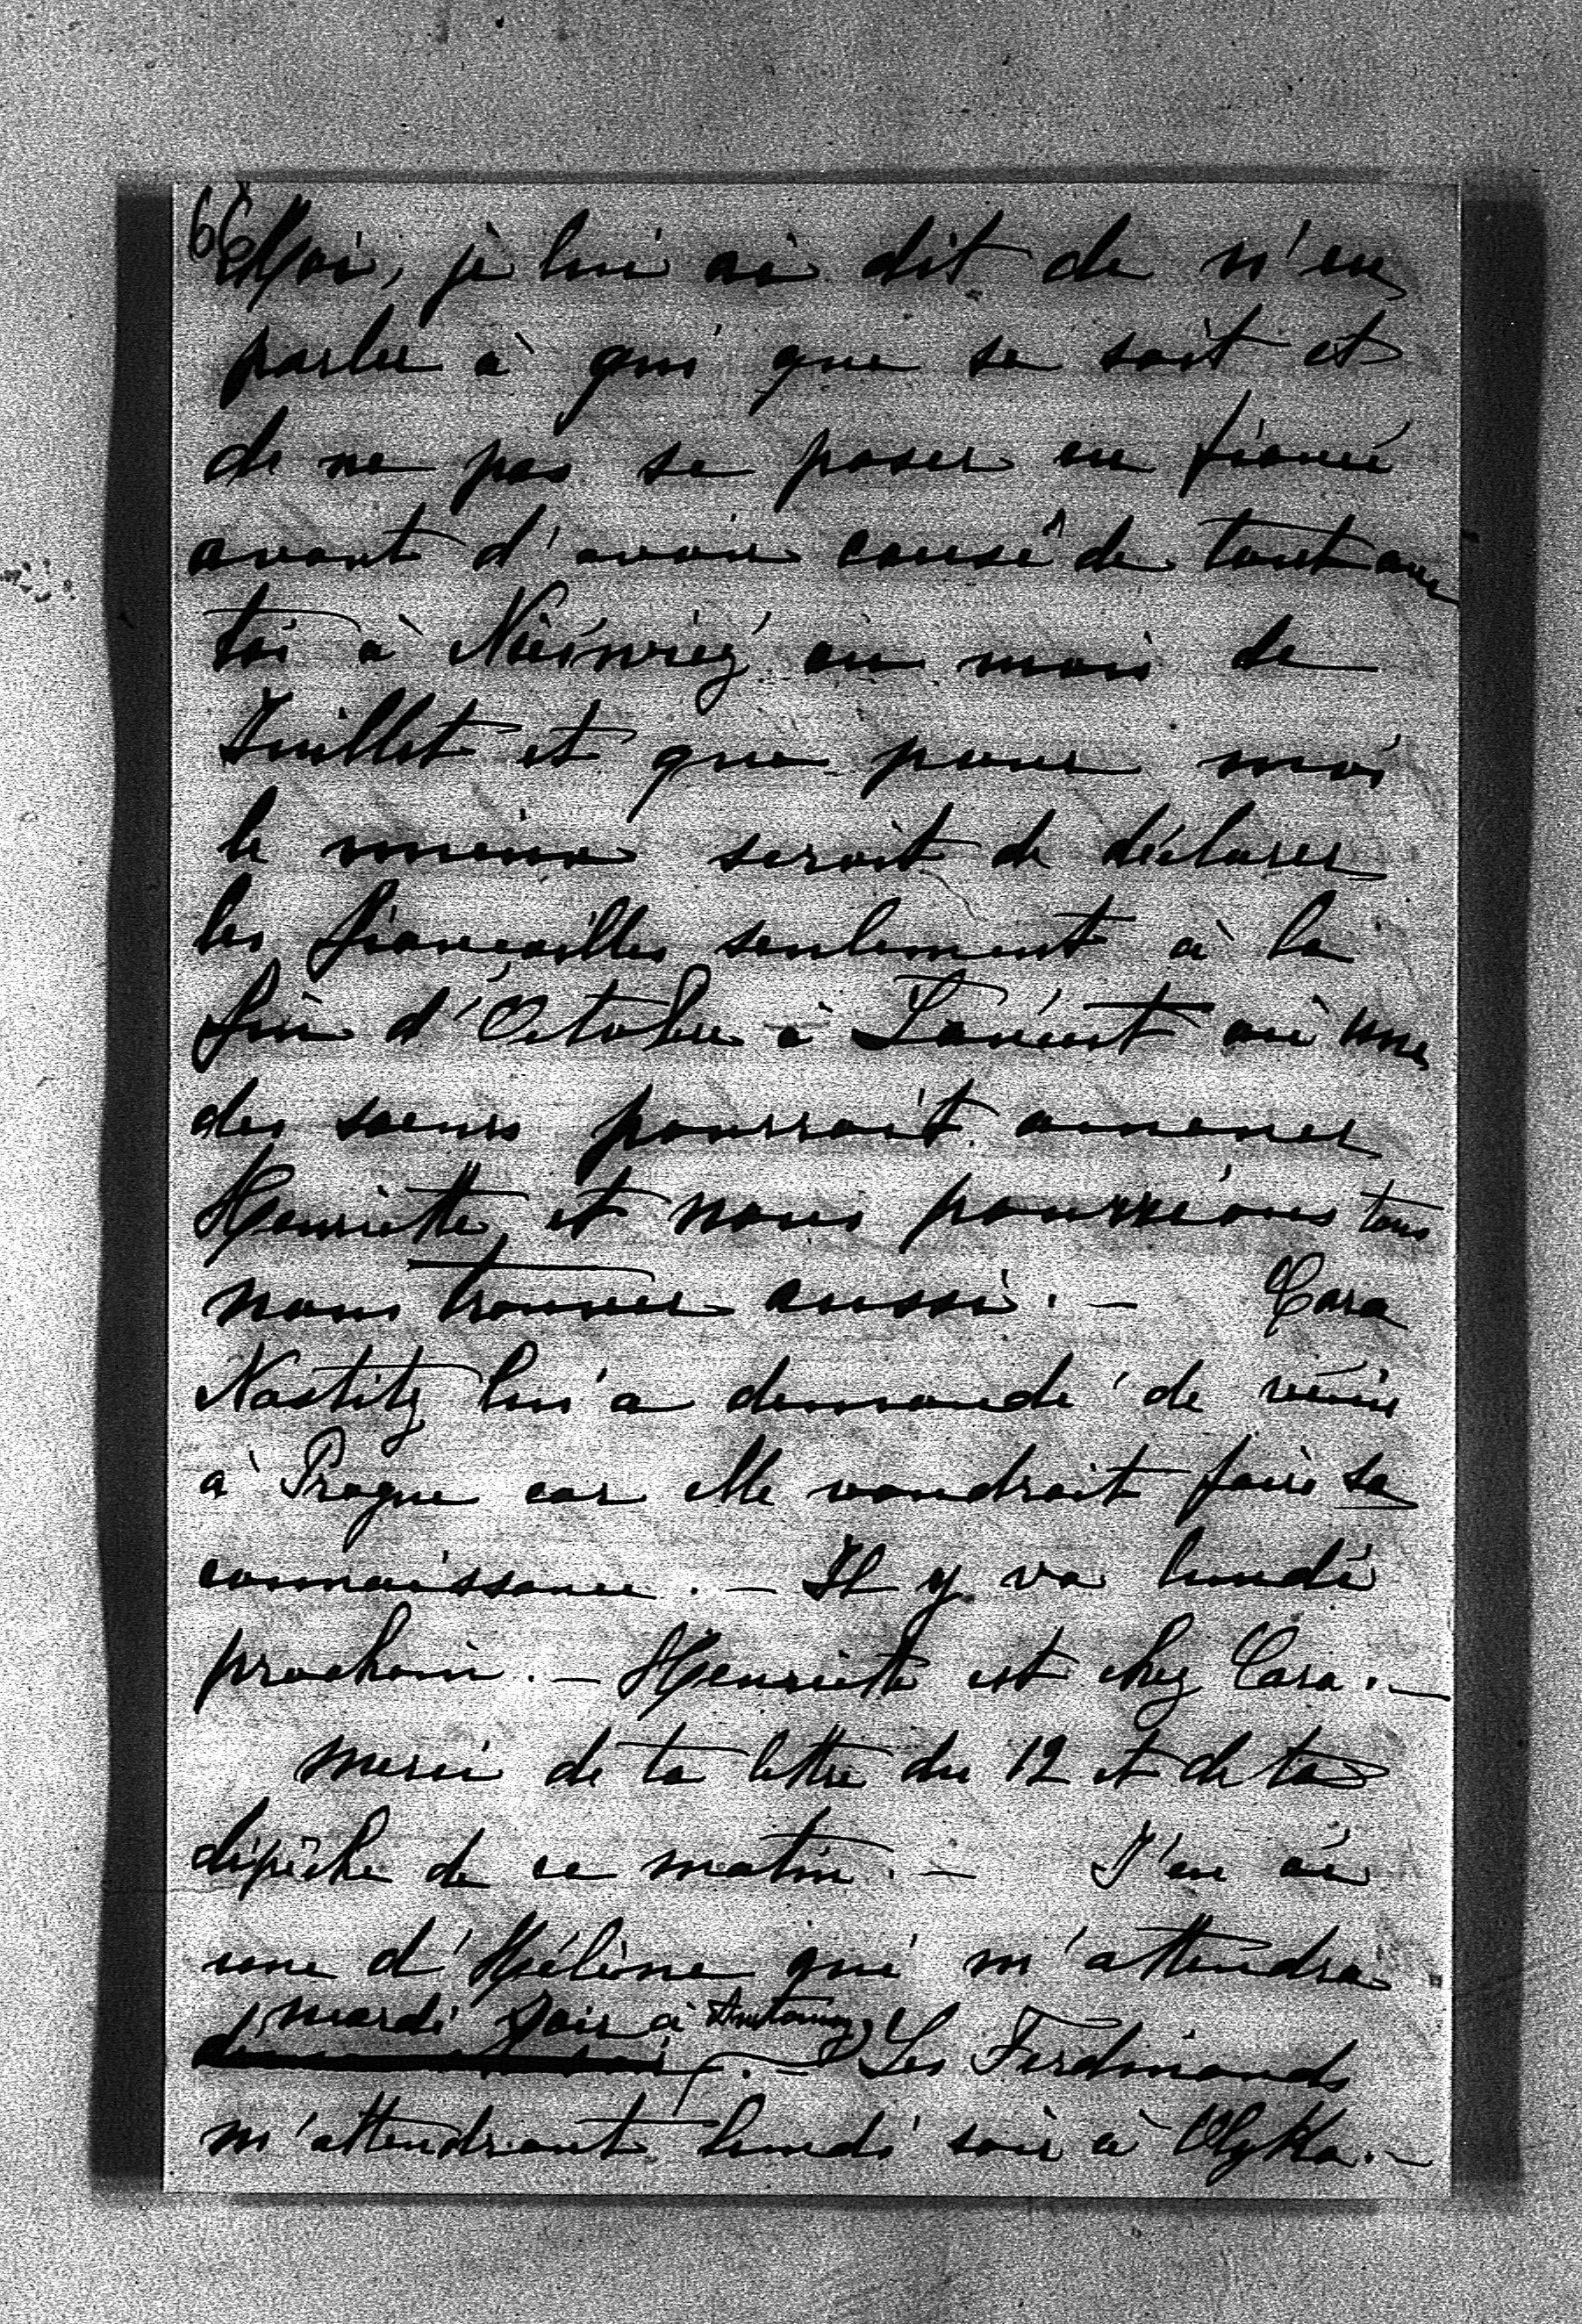 66
Moi, je lui ai dit de n'en
parler à qui que se soit et
de ne pas se poser en fiancé
avant d'avoir causé de tout avec
toi à Nieśwież au mois de
Juillet et que pour moi
le mieux serait de déclarer
les fiancailles seulement à la
fin d'Octobre à Łańcut où une
des soeurs pourrait amener
Henriette et nous pourrions tous
nous trouver aussi. — Cara
Nostitz lui a demandé de venir
à Prague car elle voudrait faire sa
connaissance. — Il y va lundi
prochain. — Henriette est chez Cara. —
merci de ta lettre du 12 et de ta
dépêche de ce matin. — J'en ai
une d'Hélène qui m'attendra
mardi soir à Antoniny
. — Les Ferdinands
m'attendront lundi soir à Olyka. —